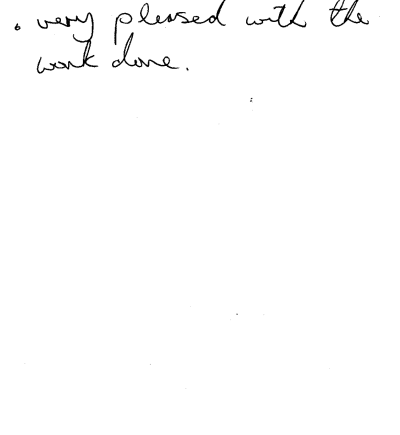 . very pleased with the
work done.